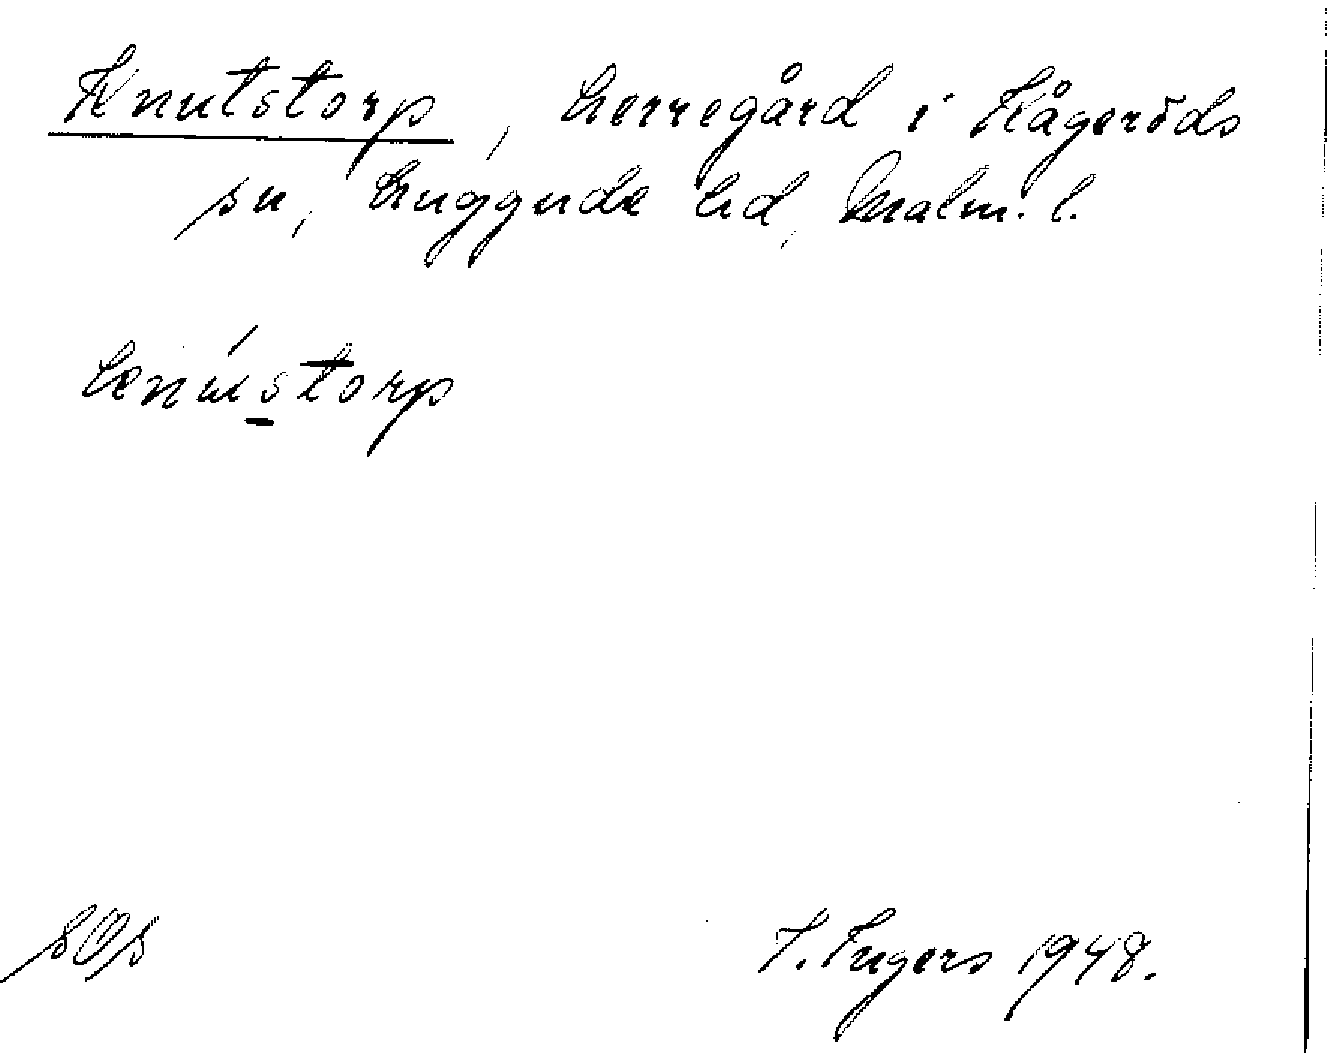 Knutstorp, herregård i Kågeröds
sn, Luggude hd, Malm. l.
knústorp
SOS
I. Ingers 1948.